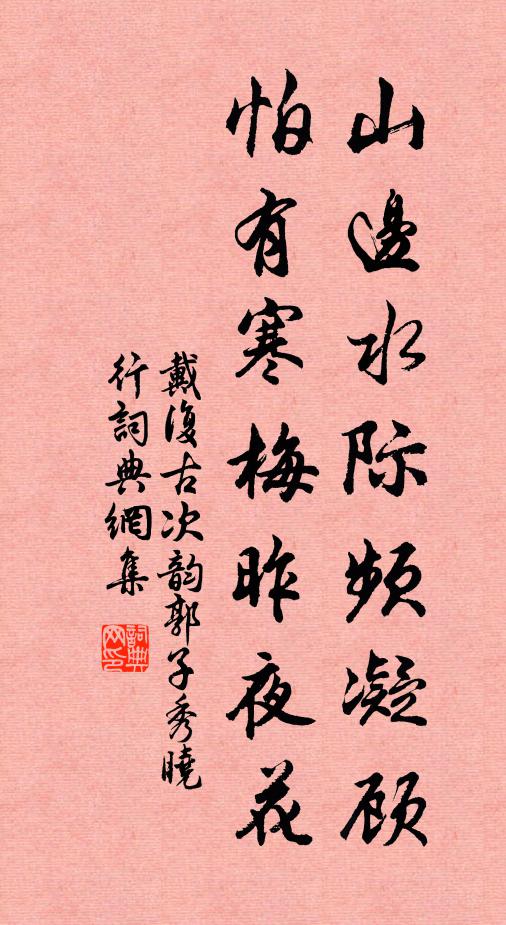 山邊水际頻凝顾
怕有寒梅昨夜花
戴復古次韵郭子秀曉
行詞典網集
詞典
网印